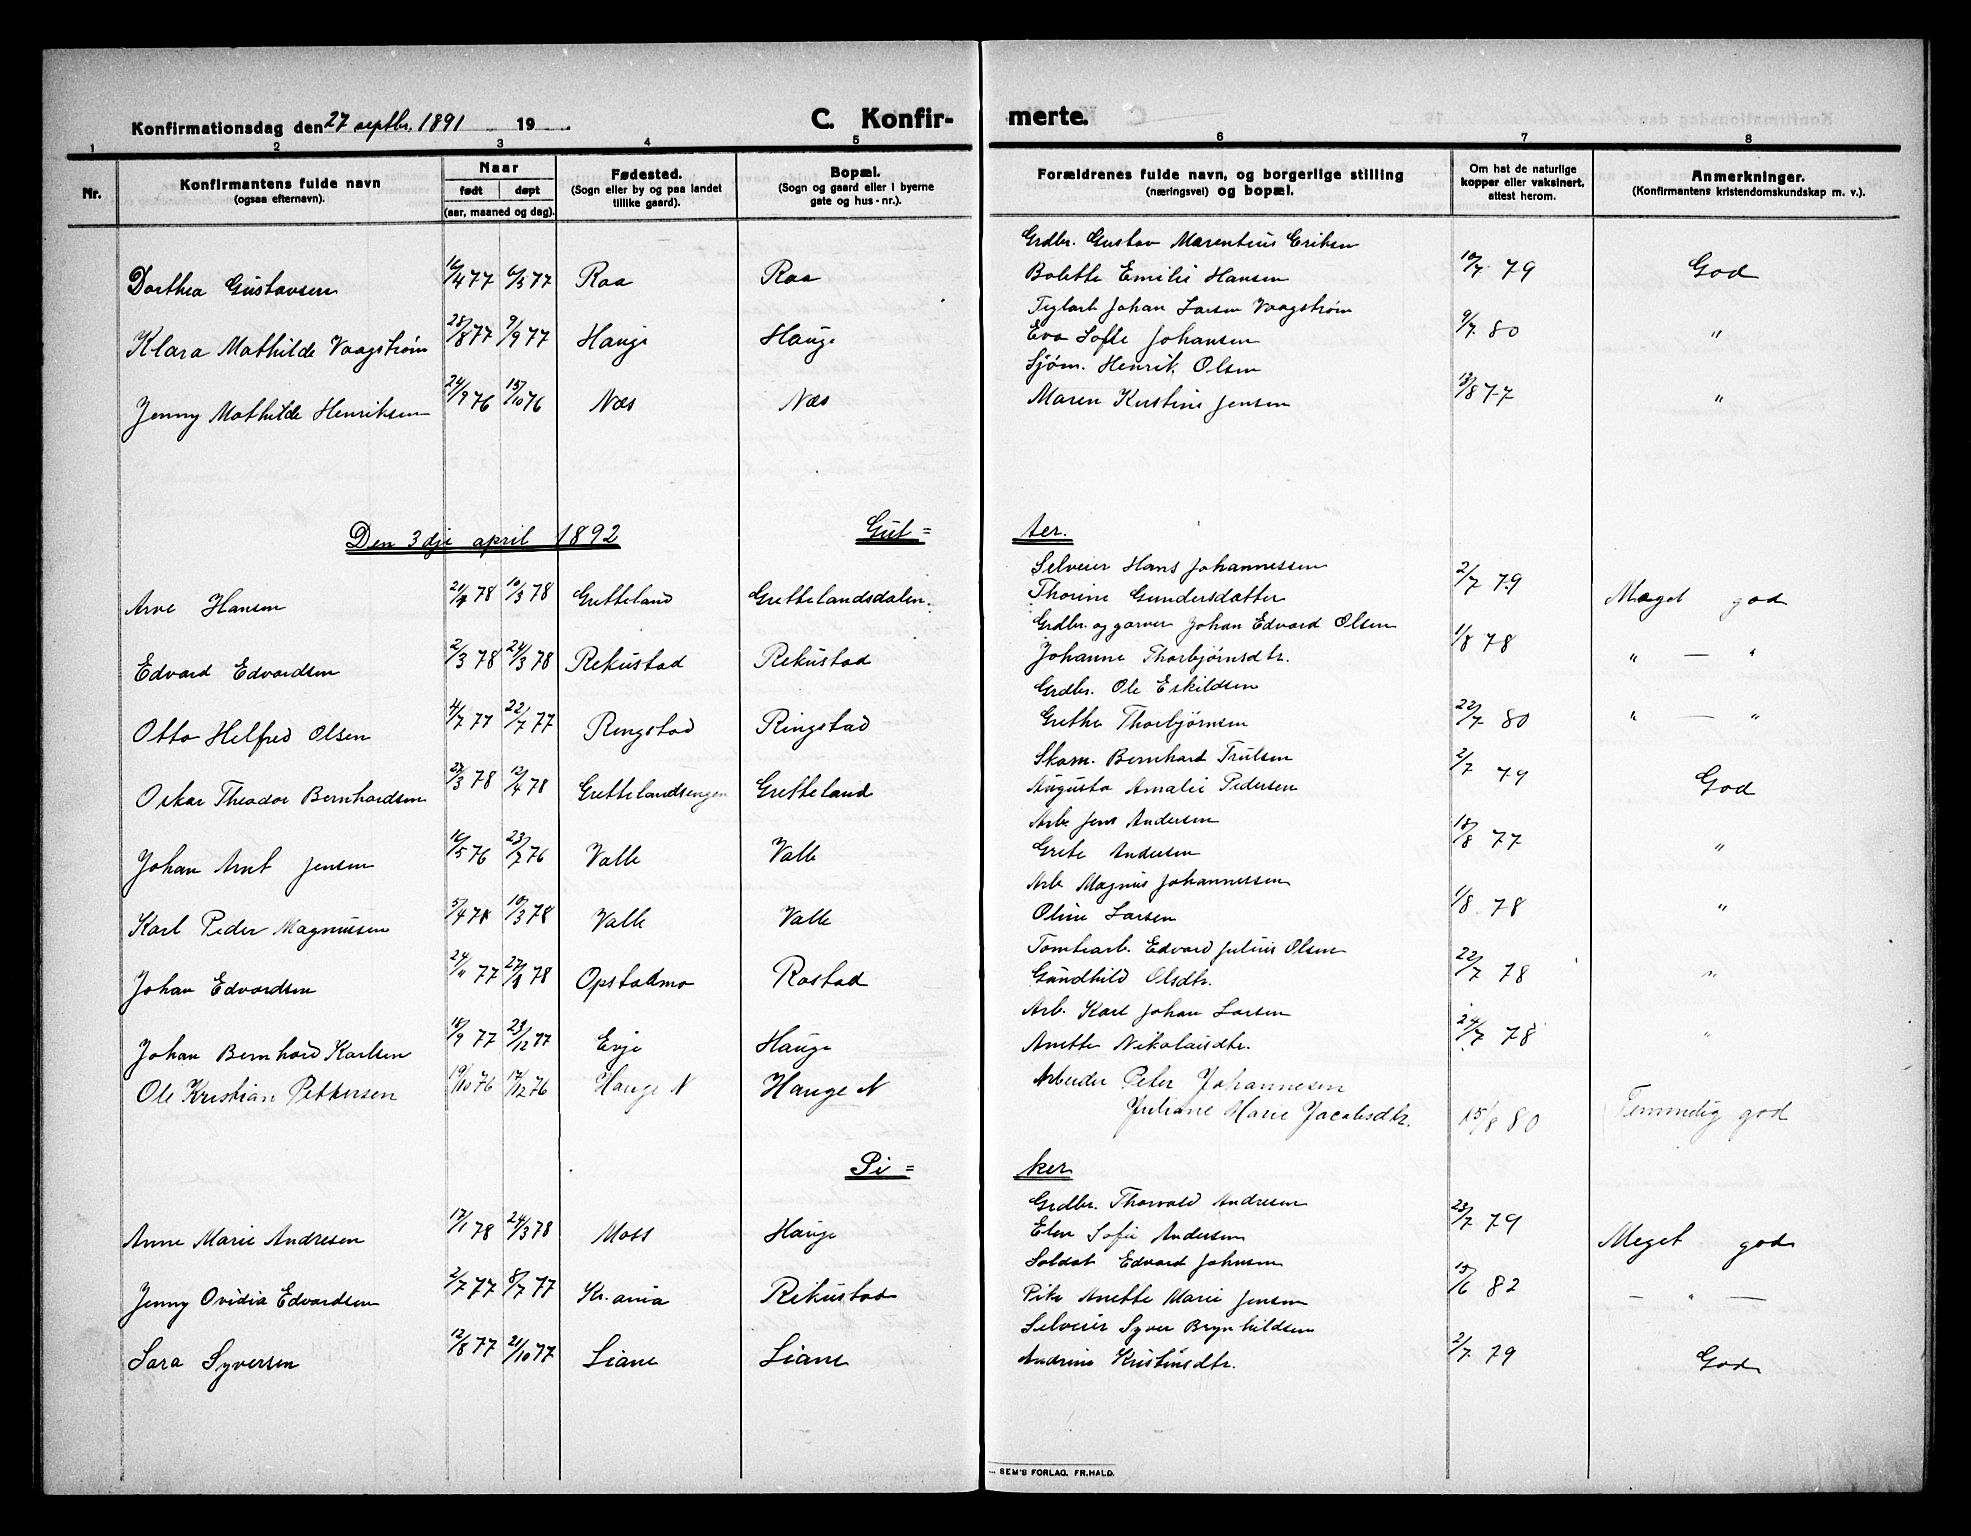 Konfirmationsdag den 27 septbr. 1891 19
C. Konfir- merte.
1 2 3 4 5 6 7 8
Nr. Konfirmantens fulde navn (ogsaa efternavn). Naar født døpt (aar, maaned og dag). Fødested. (Sogn eller by og paa landet tillike gaard). Bopæl. (Sogn og gaard eller i byerne gate og hus-nr.). Forældrenes fulde navn, og borgerlige stilling (næringsvei) og bopæl. Om hat de naturlige kopper eller vaksinert, attest herom. Anmerkninger. (Konfirmantens kristendomskundskap m. v.).
Grdbr. Gustav Marentius Eriksen
Dorthea Gustavsen 16/4 77 6/5 77 Raa Raa Bolette Emilie Hansen 10/7 79 God
Teglarb Johan Larsen Vaagstrøm
Klara Mathilde Vaagstrøm 28/8 77 9/9 77 Hauge Hauge Eva Sofie Johansen 9/7 80 "
Sjøm. Henrik Olsen
Jenny Mathilde Henriksen 24/9 76 15/10 76 Næs Næs Maren Kristine Jensen 13/8 77 "
Den 3dje april 1892 Gut= ter.
Selveier Hans Johannessen
Arve Hansen 78 10/3 78 Gretteland Grettelandsdalen. Thorine Gundersdatter 2/7 79 Meget god
Grdbr. og garver Johan Edvard Olsen
Edvard Edvardsen 2/3 78 24/3 78 Rekustad Rekustad Johanne Thorbjørnsdtr. 1/8 78 " — "
Grdbr. Ole Eskildsen
Otto Helfred Olsen 4/7 77 22/7 77 Ringstad Ringstad Grethe Thorbjørnsen 22/7 80 " — "
Skom. Bernhard Trulsen
Oskar Theodor Bernhardsen 27/3 78 12/4 78 Grettelandsengen Gretteland Augusta Amalie Pedersen 2/7 79 God
Arb. Jens Andersen
Johan Arnt Jensen 16/5 76 23/7 76 Valle Valle Grete Andersen 18/8 77 "
Arb. Magnus Johannessen
Karl Peder Magnussen 5/4 78 10/3 78 Valle Valle Oline Larsen 1/8 78 "
Tomtearb. Edvard Julius Olsen
Johan Edvardsen 24/11 77 78 Opstadmo Rostad Gundhild Olsdtr. 22/7 78 "
Arb. Karl Johan Larsen
Johan Bernhard Karlsen 18/9 77 23/12 77 Evje Hauge Anette Nikolaisdtr. 24/7 78 "
Arbeider Peter Johannesen
Ole Kristian Pettersen 19/10 76 17/12 76 Hauge N Hauge N
Juliane Marie Jacobsdtr. 15/8 80 Temmelig god
Pi= ker
Grdbr. Thorvald Andresen
Anne Marie Andresen 17/1 78 24/3 78 Moss Hauge Elen Sofie Andersen 23/7 79 Meget god
Soldat Edvard Johnsen
Jenny Ovidia Edvardsen 2/7 77 8/7 77 Kr.ania Rekustad Pike Anette Marie Jensen 15/6 82 — " —
Selveier Syver Brynhildsen
Sara Syversen 12/8 77 21/10 77 Liane Liane Andrine Kristiansdtr. 2/7 79 God
SEM'S FORLAG, FR. HALD.